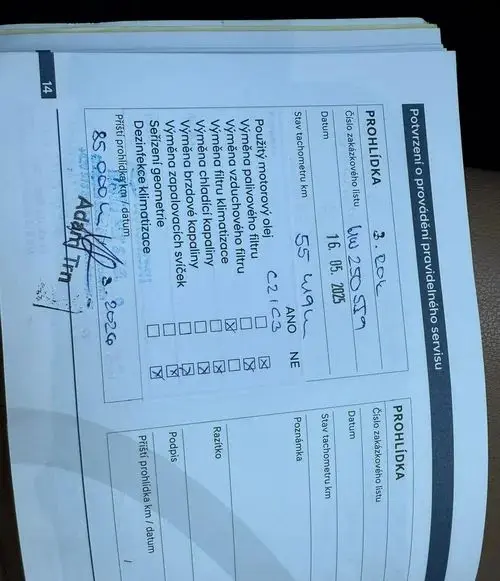 Potvrzení o provádění pravidelného servisu
PROHLÍDKA 3. rok
Číslo zakázkového listu
Datum 16. 05. 2025
Stav tachometru km
Použitý motorový olej C2/C3
ANO NE
Výměna palivového filtru
Výměna vzduchového filtru
Výměna filtru klimatizace
Výměna chladicí kapaliny
Výměna brzdové kapaliny
Výměna zapalovacích svíček
Seřízení geometrie
Dezinfekce klimatizace
Příští prohlídka km / datum
85.000
2026
Adam
14
PROHLÍDKA
Číslo zakázkového listu
Datum
Stav tachometru km
Poznámka
Razítko
Podpis
Příští prohlídka km / datum